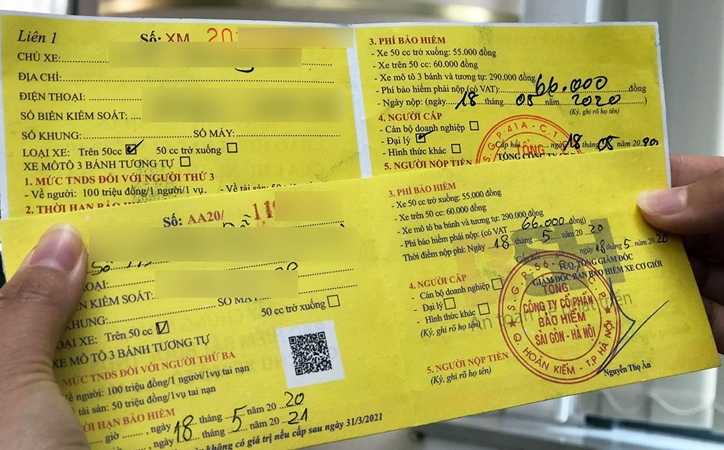 Liên 1
Số: XM 20
CHỦ XE:
ĐỊA CHỈ:
ĐIỆN THOẠI:
SỐ BIÊN KIỂM SOÁT:
SỐ KHUNG: SỐ MÁY:
LOẠI XE: Trên 50cc 50 cc trở xuống:
XE MÔTÔ 3 BÁNH TƯƠNG TỰ
1. MỨC TNDS ĐỐI VỚI NGƯỜI THỨ 3
- Về người: 100 triệu đồng/1 người/1 vụ. - Về tài sản: 50
2. THỜI HẠN BẢO
3. PHÍ BẢO HIỂM
- Xe 50 cc trở xuống: 55.000 đồng
- Xe trên 50 cc: 60.000 đồng
- Xe mô tô 3 bánh và tương tự: 290.000 đồng
- Phí bảo hiểm phải nộp (có VAT): 66.000 đồng
- Ngày nộp: (ngày 18 tháng 05 năm 2020
(Ký, ghi rõ họ tên)
4. NGƯỜI CẤP
- Cán bộ doanh nghiệp
- Đại lý
- Hình thức khác:
5. NGƯỜI NỘP TIỀN
S.G.P 41A - C.T
ngày 18 tháng 05 năm 20
TỔNG
Số: AA20/ 119
LOẠI:
BIÊN KIỂM SOÁT:
KHUNG: SỐ MÁY
LOẠI XE: Trên 50 cc 50 cc trở xuống:
XE MÔ TÔ 3 BÁNH TƯƠNG TỰ
MỨC TNDS ĐỐI VỚI NGƯỜI THỨ BA
người: 100 triệu đồng/1 người/1 vụ tai nạn
tài sản: 50 triệu đồng/1 vụ tai nạn
HẠN BẢO HIỂM
giờ , ngày 18 tháng 5 năm 20 20
năm 20 21
không có giá trị nếu cấp sau ngày 31/3/2021
3. PHÍ BẢO HIỂM
- Xe 50 cc trở xuống: 55.000 đồng
- Xe trên 50 cc: 60.000 đồng
- Xe mô tô ba bánh và tương tự: 290.000 đồng
- Phí bảo hiểm phải nộp: (có VAT 66.000 đồng)
Thời điểm nộp phí: Ngày 18 tháng 5 năm 20 20
ngày 18 tháng 5 năm 20 20
TỔNG GIÁM ĐỐC
GIÁM ĐỐC BAN BẢO HIỂM XE CƠ GIỚI
4. NGƯỜI CẤP
- Cán bộ doanh nghiệp
- Đại lý
- Hình thức khác:
(Ký, ghi rõ họ tên)
TỔNG
CÔNG TY CỔ PHẦN
BẢO HIỂM
SÀI GÒN - HÀ NỘI
Q. HOÀN KIẾM - T.P HÀ NỘI
5. NGƯỜI NỘP TIỀN
(Ký, ghi rõ họ tên)
Nguyễn Thọ Ân